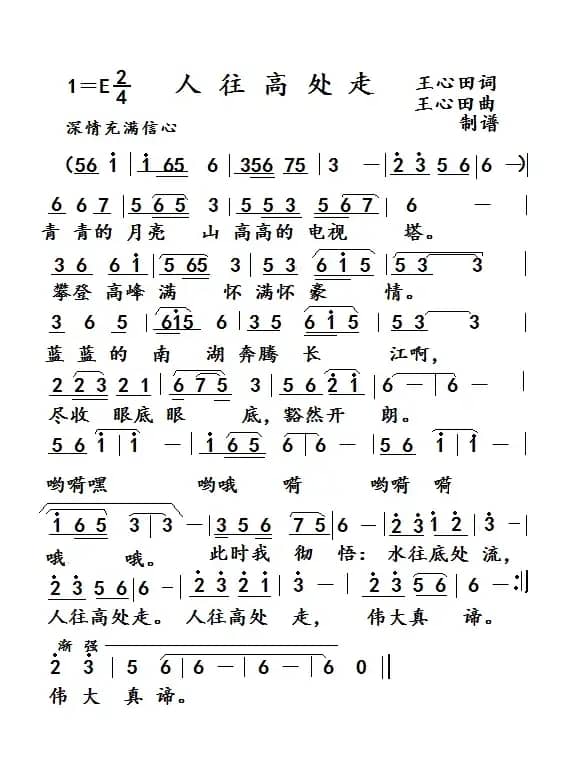 1=E 2/4 人往高处走 王心田词
王心田曲
深情充满信心 制谱
(56 1̇ | 1̇65 6 | 356 75 | 3 － | 2̇ 3̇ 5 6 | 6 －)
6 6 7 | 5 6 5 3 | 5 5 3 5 6 7 | 6 －
青青的月亮 山高高的电视 塔。
3 6 6 1̇ | 5 65 3 | 5 3 6 1̇ 5 | 5 3 3
攀登高峰满 怀满怀豪 情。
3 6 5 | 61̇5 6 | 3 5 6 1̇ 5 | 5 3 3
蓝蓝的南湖奔腾长 江啊，
2 2 3 2 1 | 6 7 5 3 | 5 6 2̇ 1̇ | 6 － | 6 －
尽收眼底眼 底，豁然开 朗。
5 6 1̇ | 1̇ － | 1̇ 6 5 | 6 6 － | 5 6 1̇ | 1̇ －
哟嗬嘿 哟哦 嗬 哟嗬 嗬
1̇ 6 5 3 | 3 － | 3 5 6 7 5 | 6 － | 2̇ 3̇ 1̇ 2̇ | 3̇ －
哦 哦。 此时我 彻 悟：水往底处 流，
2̇ 3̇ 5 6 | 6 － | 2̇ 3̇ 2̇ 1̇ | 3̇ － | 2̇ 3̇ 5 6 | 6 － :||
人往高处走。人往高处 走， 伟大真 谛。
渐强
2̇ 3̇ | 5 6 | 6 － | 6 － | 6 0 ||
伟大真谛。